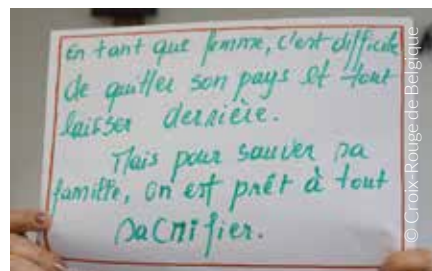 En tant que femme, c'est difficile
de quitter son pays et tout
laisser derrière.
Mais pour sauver sa
famille, on est prêt à tout
sacrifier.
© Croix-Rouge de Belgique